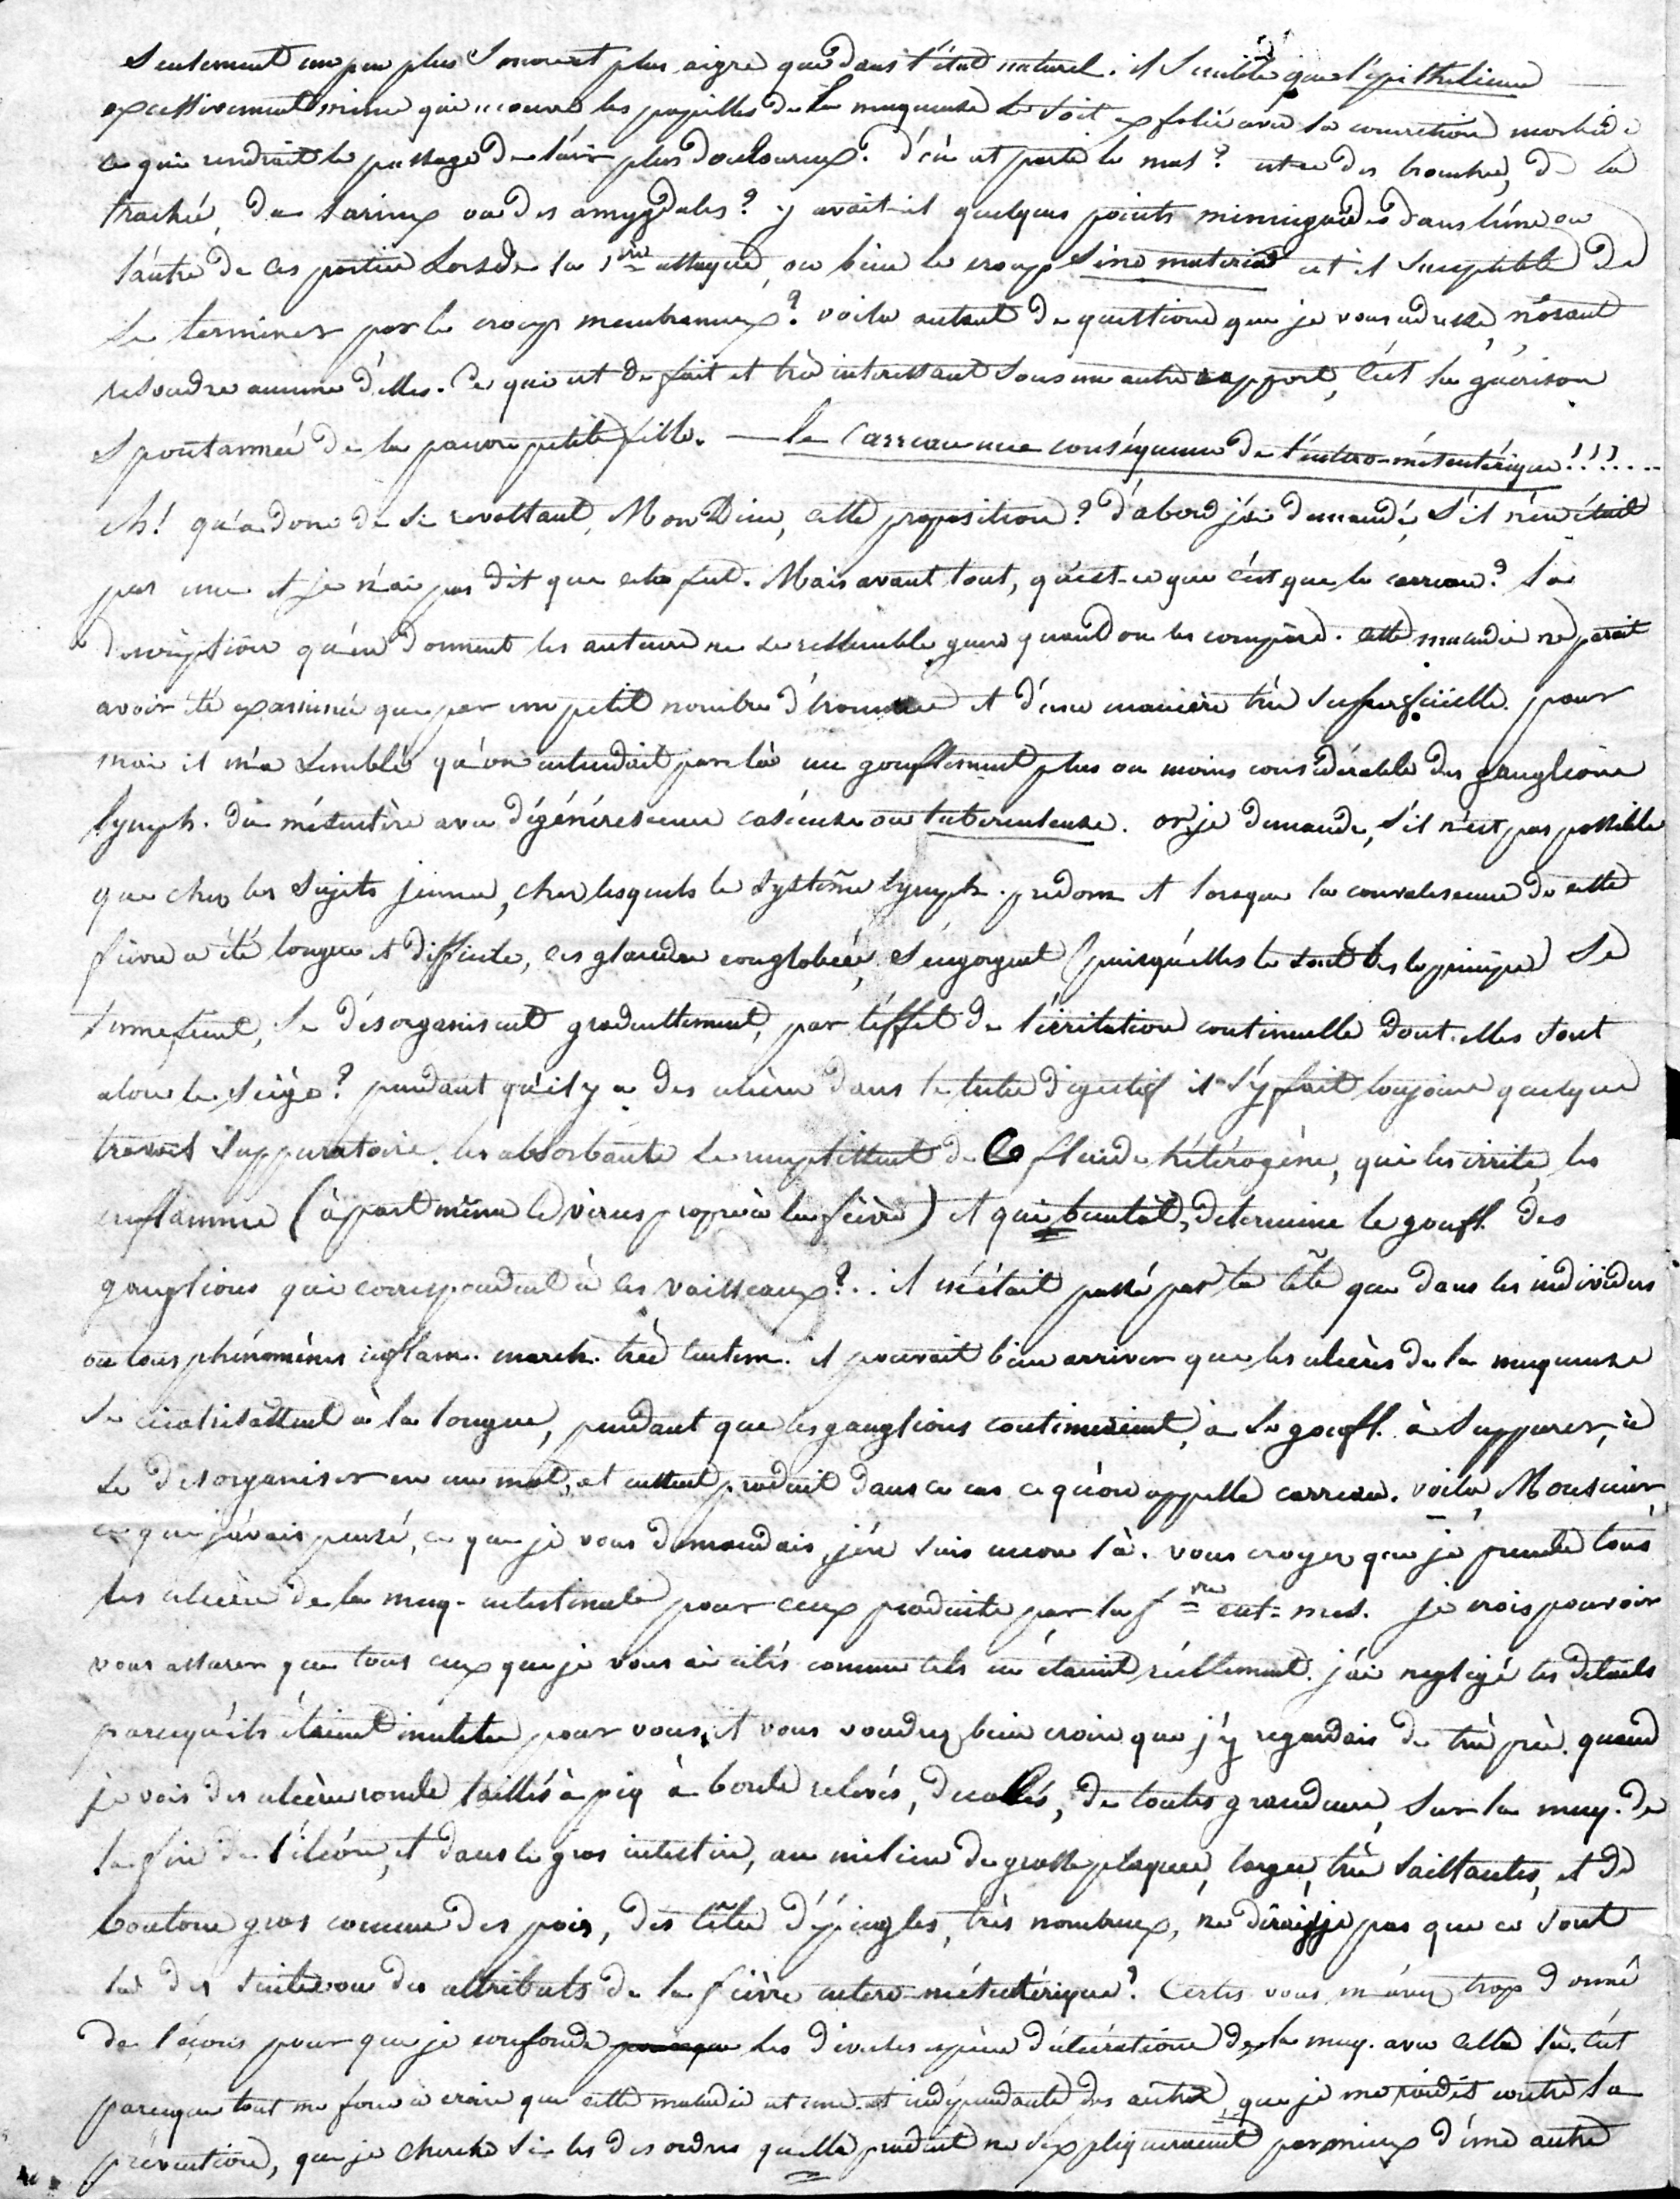 seulement un peu plus sonore et plus aigre que dans l'état naturel. il semble que l'épithelium
excessivement mince qui recouvre les papilles de la muqueuse se soit exfolié avec la concretion morbide
ce qui rendrait le passage de l'air plus douloureux. d'où est parti le mal? est-ce des bronches, de la
trachée, du larinx ou des amygdales? y avait-il quelques points dans l'une ou
l'autre de ces parties Lors de la 1ère attaque, ou bien le croup sine materia est il susceptible de
se terminer par le croup membraneux? voila autant de questions que je vous adresse, n'osant
resoudre aucune d'elles. Ce qui est de fait et très interessant sous un autre rapport, c'est la guérison
spontannée de la pauvre petite fille. — le Carreau une conséquence de l'entéro-mésentérique!!!....
eh! qu'a donc de si revoltant, Mon Dieu, cette proposition? d'abord j'ai demandé, s'il n'en était
pas une et je n'ai pas dit que cela fut. Mais avant tout, qu'est-ce que c'est que le carreau? la
description qu'en donnent les auteurs ne se ressemble guere quand on les compare. cette maladie ne parait
avoir été examinée que par un petit nombre d'hommes et d'une manière très superficielle. pour
moi il m'a semblé qu'on entendait par là un gonflement plus ou moins considérable des ganglions
lymph. du mésentère avec dégénérescence caséeuse ou tuberculeuse. or je demande, s'il n'est pas possible
que chez les sujets jeunes, chez lesquels le système lymph. predom. et lorsque la convalescence de cette
fièvre a été longue et difficile, ces glandes conglobées, s'engorgent (puisqu'elles le sont dès le principe) se
tumefient, se désorganisent graduellement, par l'effet de l'irritation continuelle dont elles sont
alors le siège? pendant qu'il y a des ulcères dans le tube digestif il s'y fait toujours quelque
travail suppuratoire. les absorbants se remplissent de ce fluide hétérogène, qui les irrite, les
enflamme (à part même le virus propre à la fièvre) et qui bientôt, determine le gonfl. des
ganglions qui correspondent à ces vaisseaux?.. il m'était passé par la tête que dans les individus
où tous phénomènes inflam. march. très lentem. il pouvait bien arriver que les ulcères de la muqueuse
se cicatrisassent à la longue, pendant que les ganglions continueraient, à se gonfl. à suppurer, à
se desorganiser en un mot, et eussent produit dans ce cas ce qu'on appelle carreau. voila, Monsieur
ce que j'avais pensé, ce que je vous demandais, j'en suis encore là. vous croyez que je prends tous
les ulcères de la muq. intestinale pour ceux produits par la fvre ent-mes. je crois pouvoir
vous assurer que tous ceux que je vous ai cités comme tels en étaient réellement. j'ai negligé les details
parcequ'ils étaient inutiles pour vous, et vous voudrez bien croire que j'y regardais de très près. quand
je vois des ulcères ronds taillés à pic à bords relevés, decollés, de toutes grandeurs, sur la muq. de
la fin de l'iléon, et dans le gros intestin, au milieu de grosses plaques, larges, très saillantes, et de
boutons gros comme des pois, des têtes d'épingles, très nombreux, ne dirai-je pas que ce sont
là des suites ou des attributs de la fièvre entero-mésentérique? Certes vous m'avez trop donné
de leçons pour que je confonde les diverses espèces d'ulcérations de la muq. avec celle là. c'est
parceque tout me force à croire que cette maladie est une et indépendante des autres, que je me roidis contre la
prévention, que je cherche si les desordres qu'elle produit ne s'expliqueraient pas mieux d'une autre